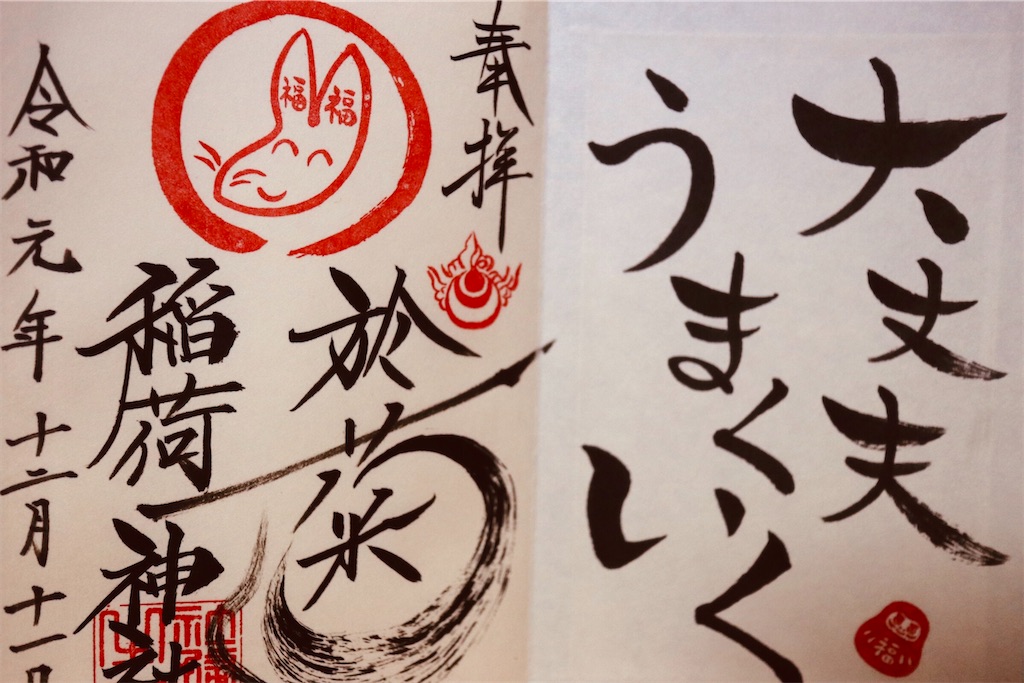 大丈夫
うまく
いく
福
奉拝
於菊
福福
稲荷神社
令和元年十二月十一日